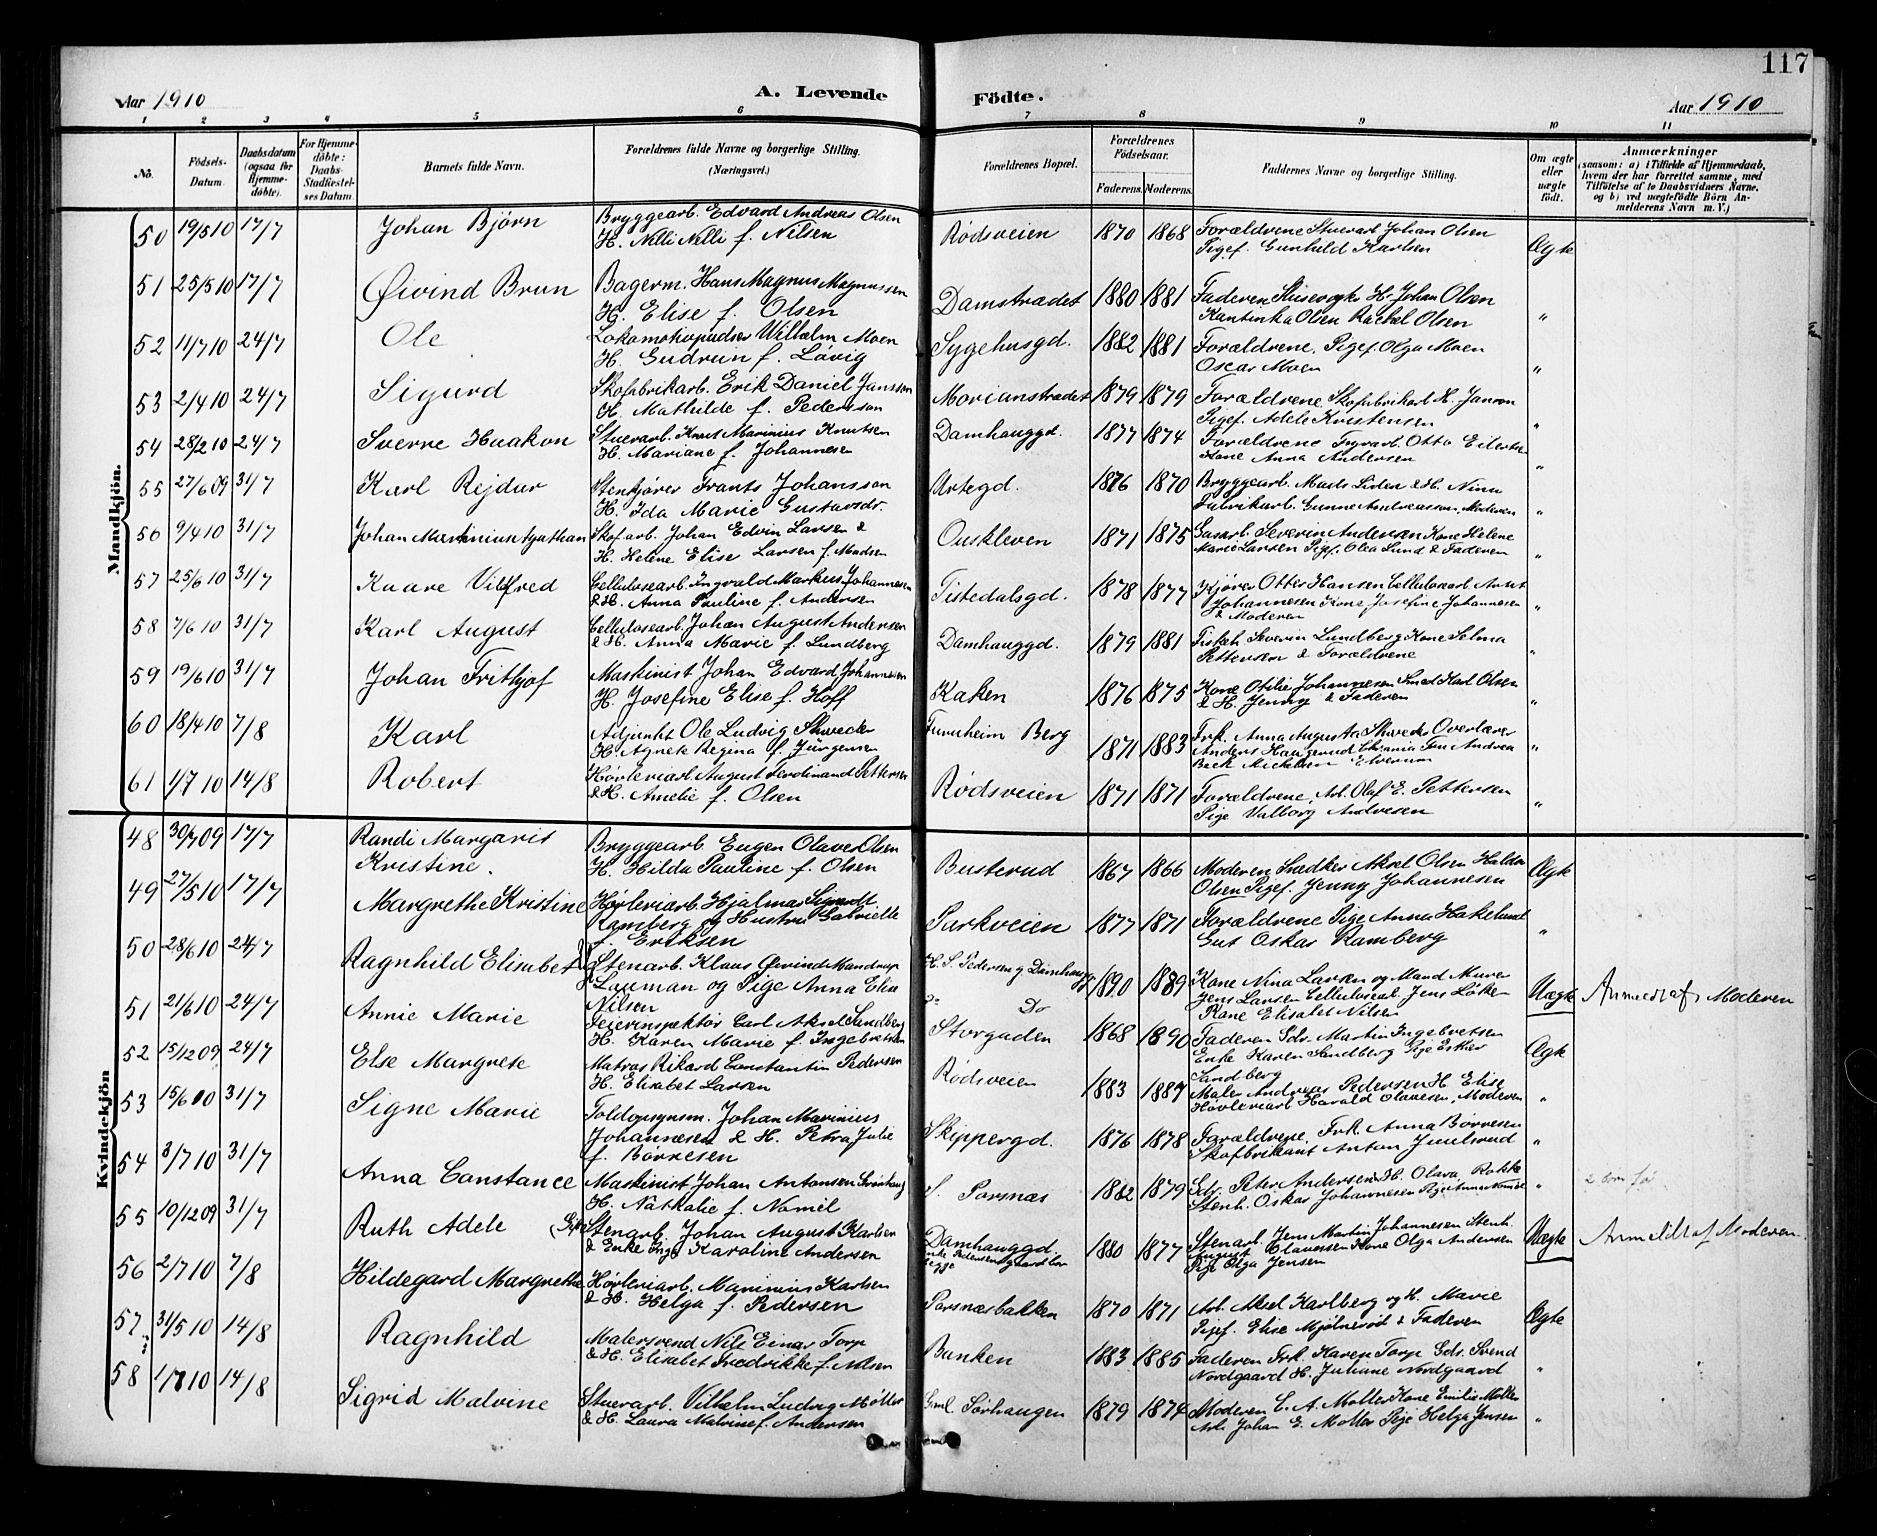 117
Aar 1910
A. Levende
Födte.
Aar 1910
1 2 3 4 5 6 7 8 9 10 11
No.
Födsels-Datum.
Daabsdatum (ogsaa for Hjemmedöbte).
For Hjemmedöbte: Daabs-Stadfæstelses Datum
Barnets fulde Navn.
Forældrenes fulde Navne og borgerlige Stilling. (Næringsvei.)
Forældrenes Bopæl.
Forældrenes Födselsaar.
Faderens. Moderens.
Faddernes Navne og borgerlige Stilling.
Om ægte eller uægte födt.
Anmærkninger
(saasom: a) i Tilfælde af Hjemmedaab, hvem der har forrettet samme, med Tilföielse af to Daabsvidners Navne, og b) ved uægtefödte Börn Anmelderens Navn m. V.)
Mandkjön.
50 19/5 10 17/7 Johan Bjørn
Bryggearb. Edvard Andreas Olsen
H. Nelli Nelli f. Nilsen
Rødsveien 1870 1868
Forældrene Stuearb. Johan Olsen
Pigef. Gunhild Karlsen
Ægte
51 25/5 10 17/7 Øivind Brun
Bagerm. Hans Magnus Magnussen
H. Elise f. Olsen
Damstrædet 1880 1881
Faderen Slusevogter H. Johan Olsen
Kantinka Olsen Rachel Olsen
"
52 11/7 10 24/7 Ole
Lokomotivpudser Wilhelm Moen
H. Gudrun f. Løvig
Sygehusgd. 1882 1881
Forældrene, Pigef. Olga Moen
Oscar Moen
"
53 2/4 10 24/7 Sigurd
Skofabrikarb. Erik Daniel Janssen
H. Mathilde f. Pedersson
Morianstrædet 1879 1879
Forældrene Skofabrikarb. H. Janson
Pigef. Adele Kristensen
"
54 28/2 10 24/7 Sverre Haakon
Stuerarb. Knut Marinius Knutsen
H. Mariane f. Johannesen
Damhauggd. 1877 1874
Forældrene Tugvarb. Otto Eilertsen
Kone Anna Andersen
"
55 27/6 09 31/7 Karl Rejdar
Stenkjører Frants Johansson
H. Ida Marie Gustavsdr.
Urtegd. 1876 1870
Bryggearb. Mads Liden & H. Nina
Fabrikarb. Gunne Andreasson, Moderen
"
56 9/4 10 31/7 Johan Martinius Agathan
Skofarb. Johan Edvin Larsen &
H. Helene Elise Larsen f. Madsen
Ouskleven 1871 1875
Gasarb. Severin Andersen Kone Helene
Marie Larsen Pigef. Olea Lund & Faderen
"
57 25/6 10 31/7 Kaare Vilfred
Cellulosearb. Ingvald Markus Johannesen
& H. Anna Pauline f. Andersen
Tistedalsgd. 1878 1877
Kjører Otter Hansen Cellulosearb. Arnt
Johannesen Kone Josefine Johannesen
& Moderen
"
58 7/6 10 31/7 Karl August
Cellulosearb. Johan August Andersen
& H. Anna Marie f. Lundberg
Damhauggd. 1879 1881
Fiskeh Severin Lundberg Kone Selma
Pettersen & Forældrene
"
59 19/6 10 31/7 Johan Frithjof
Maskinist Johan Edvard Johannesen
H. Josefine Elise f. Hoff
Kaken 1876 1875
Kone Otilie Johannesen Smed Karl Olsen
& H. Jenny & Faderen
"
60 18/4 10 7/8 Karl
Adjunkt Ole Ludvig Skweder
H. Agnete Regina f. Jürgensen
Furuheim Berg 1871 1883
Frk. Anna Augusta Skweder Overlærer
Anders Haugerud Chrania Fru Andrea
Beck Mickelsen Elverum
"
61 1/7 10 14/8 Robert
Høvleriarb. August Ferdinand Pettersen
& H. Amelie f. Olsen
Rødsveien 1871 1871
Forældrene, Arb. Olaf E. Pettersen
Pige Valborg Andresen
"
Kvindekjön
48 30/7 09 17/7 Randi Margaris
Kristine.
Bryggearb Eugen Olaves Olsen
H. Hilda Pauline f. Olsen
Busterud 1867 1866
Moderen Snedker Aksel Olsen Halden
Olsen Pigef. Jenny Johannesen
Ægte
49 27/5 10 17/7 Margrethe Kristine
Høvleriarb. Hjalmar Sigvardt
Ramberg og Hustru Gabrielle
f. Eriksen
Parkveien 1877 1871
Forældrene Pige Anna Hakelund
Gut Oskar Ramberg
"
50 28/6 10 24/7 Ragnhild Elisabet
Stenarb. Klaus Øivind Mandrup
Lauman og Pige Anna Elise
Nilsen
H. S. Pedersen g Damhaugg
Do 1890 1889
Kone Nina Larsen og Mand Murer
Jens Larsen Cellulosearb. Jens Løken
Kone Elisabet Nilsen
Uægte
Anmeldt af Moderen
51 21/6 10 24/7 Annie Marie
Feierinspektør Carl Aksel Sandberg
H. Karen Marie f. Ingebretsen
Storgaden 1868 1890
Faderen Gdr. Martin Ingebretsen
Enke Karen Sandberg Pige Esther
Sandberg
Ægte
52 15/12 09 24/7 Else Margrete
Matros Rikard Constantin Pedersen
H. Elisabet Larsen
Rødsveien 1883 1887
Maler Andreas Pedersen H. Elise
Høvleriarb Harald Olavesen, Moderen
"
53 15/6 10 31/7 Signe Marie
Toldopsynsm. Johan Marinius
Johannesen & H. Petra Julie
f. Børresen
Skippergd. 1876 1878
Forældrene, Frk. Anna Børresen
Skofabrikant Anton Juulsrud
"
54 3/7 10 31/7 Anna Constance
Maskinist Johan Antonsen Svinhaug
H. Nathalie f. Nomel
S. Porsnæs 1882 1879
Gdr. Peter Andersen H. Olava Rokke
Stenh. Oskar Johannesen Pige Anna Nomel
"
55 10/12 09 31/7 Ruth Adele
Stengrb. Johan August Karlsen
& Enke Inga Karoline Andersen
Damhauggd 1880 1877
Stenarb. Jens Martin Johannesen Stenh.
August Olaussen Kone Olga Andersen
Pige Olga Jensen
Uægte
Anmeldt af Moderen.
56 2/7 10 7/8 Hildegard Margrethe
Høvleriarb. Marinius Karlsen
& H. Helga f. Pedersen
Porsnæsbakken 1870 1871
Arb. Aksel Karlberg og H. Marie
Pigef. Elise Mjølnerød & Faderen
Ægte
57 31/5 10 14/8 Ragnhild
Malersvend Nils Einar Torp
& H. Elisabet Fredrikke f. Nilsen
Banken 1883 1885
Faderen Frk. Karen Torp Gdr. Svend
Nordgaard H. Juliane Nordgaard
"
58 1/7 10 14/8 Sigrid Malvine
Stuerarb. Vilhelm Ludvig Møller
& H. Laura Malvine f. Andersen
Gml. Sørhaugen 1879 1874
Moderen C. A. Moller Kone Emilie Moller
Arb. Johan E. Moller Pige Helga Jensen
"